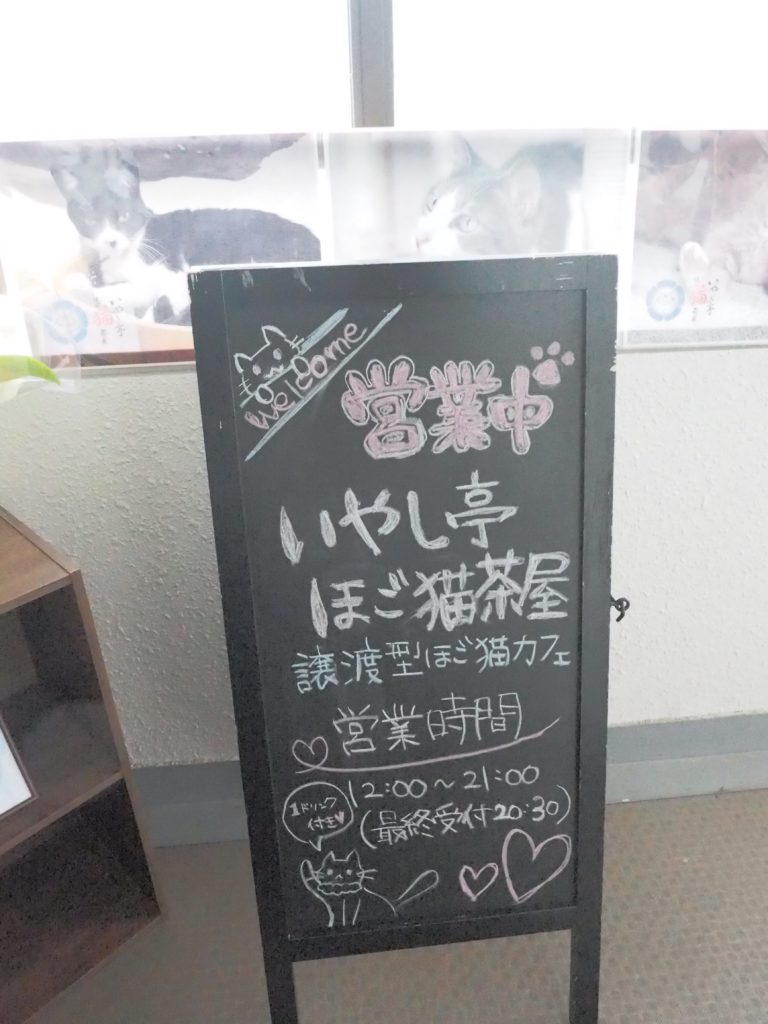 welcome
営業中
いやし亭
ほご猫茶屋
譲渡型ほご猫カフェ
営業時間
12:00～21:00
(最終受付20:30)
1ドリンク
付き
いやし亭
猫
いやし亭
猫